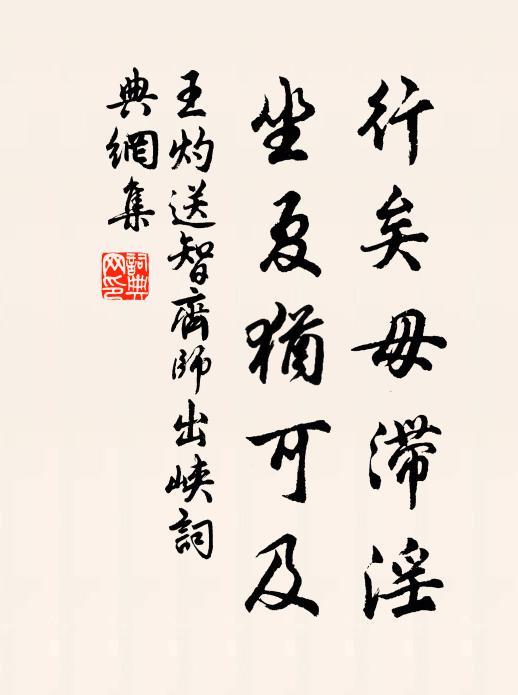 行矣毋滯淫
坐夏猶可及
王灼送智齊師出峽詞
典網集
詞典网印